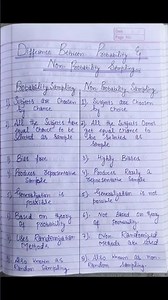 Difference Between Probability &
Non Probability Sampling
Probability Sampling
Non Probability Sampling
1) Subjects are Chosen
by Chance
1) Subjects are Chosen
by Choice
2) All the Subjects
equal Chance to be
Selected as Sample
2) All the Subjects Cannot
get equal chance to
be Selected as
Sample
3) Bias free
3) Highly Biased
4) Product Representative
Sample
4) Product Rarely a
Representative Sample
5) Generalization is
possible
5) Generalization is not
possible
6) Based on theory
of probability
6) Not based on theory
of probability
7) Uses Randomization
Methods
7) Randomized
Methods are Used
8) Also known as
Random Sampling
8) Also known as Non
Random Sampling